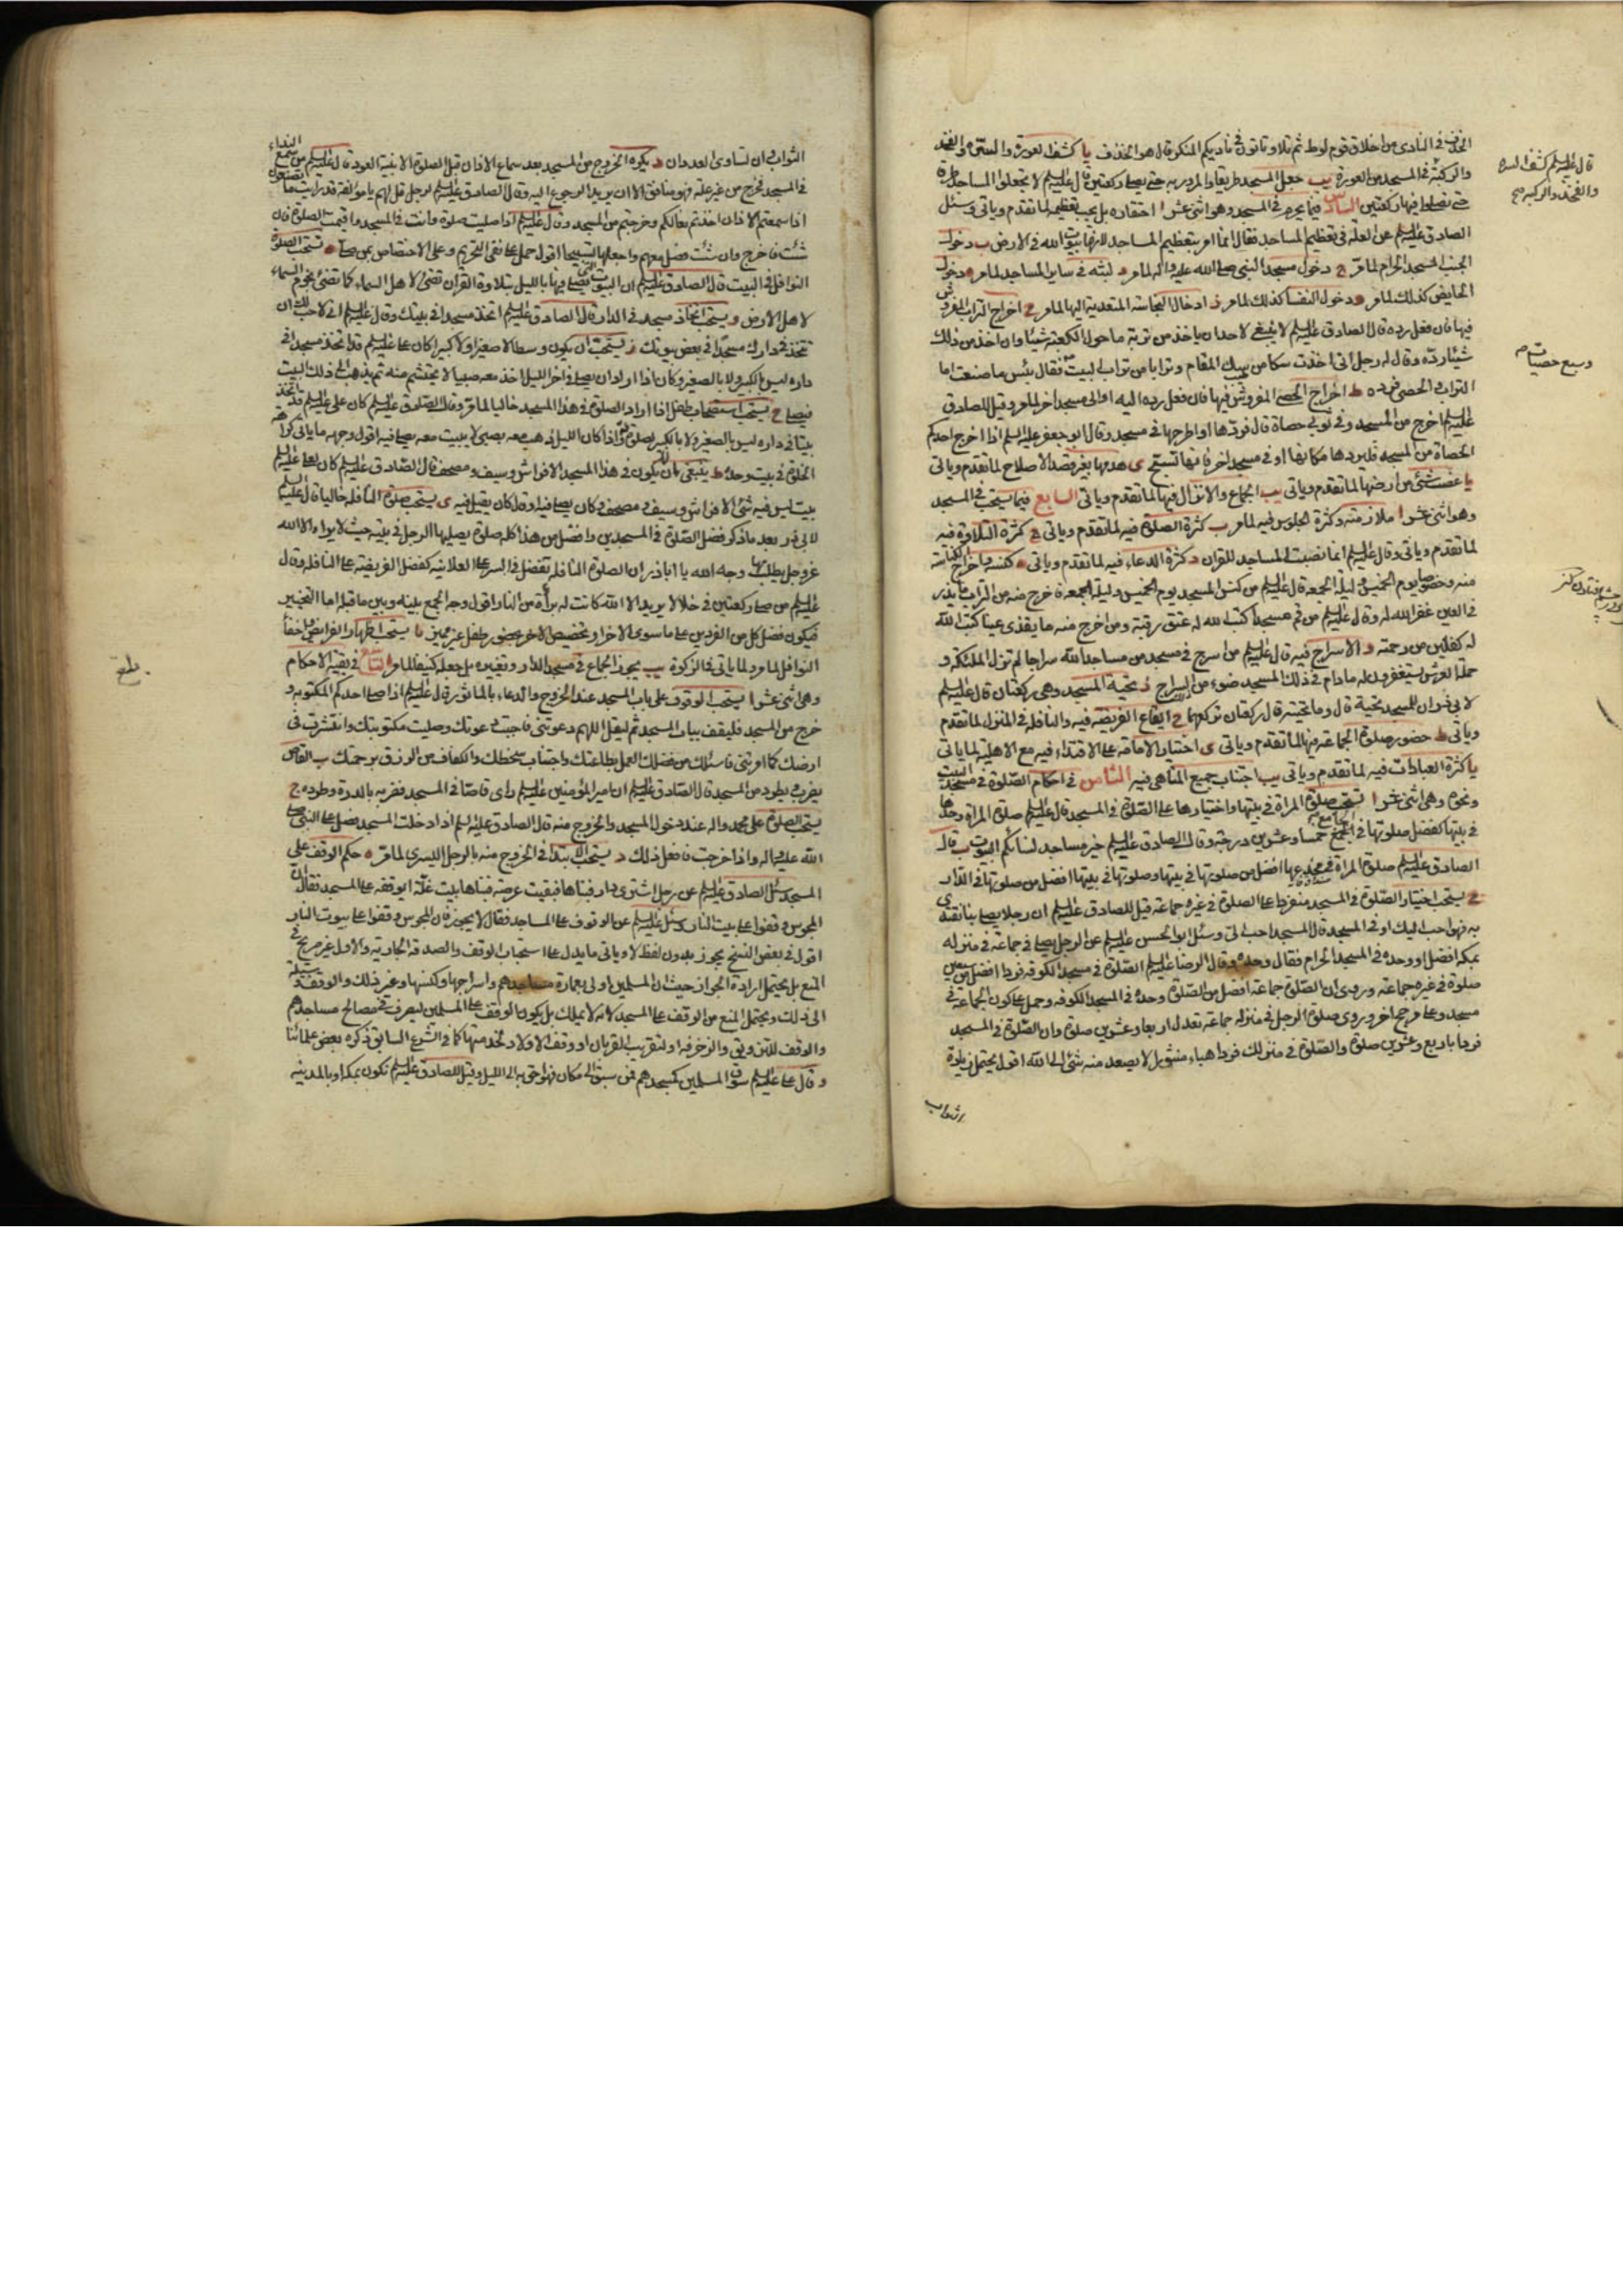 الخذف في النادي من اخلاق قوم لوط ثم تلا وتاتون في ناديكم المنكر قال هو الخذف يا كشف العورة والسرة والفخذ
والركبة في المسجد من العورة يب جعل المسجد طريقا والمرور به حتى يصلي ركعتين قال عليه السلام لا تجعلوا المساجد طرقا
حتى تصلوا فيها ركعتين السادس فيما يحرم في المسجد وهو اثنى عشر ا احتقاره بل يجب تعظيمه لما تقدم وياتي وسئل
الصادق عليه السلام عن العلة في تعظيم المساجد فقال انما امر بتعظيم المساجد لانها بيوت الله في الارض ب دخول
الجنب المسجد الحرام لما مر ج دخول مسجد النبي صلى الله عليه واله لما مر د لبثه في ساير المساجد لما مر ه دخول
الحايض كذلك لما مر و دخول النفسا كذلك لما مر ز ادخال النجاسة المتعدية اليها لما مر ح اخراج التراب المفروش
فيها فان فعل رده قال الصادق عليه السلام لا ينبغي لاحد ان ياخذ من تربة ما حول الكعبة شيئا وان اخذ من ذلك
شيئا رده وقال له رجل اني اخذت سكا من سك المقام وترابا من تراب البيت فقال بئس ما صنعت اما
التراب والحصى فرده ط اخراج الحصى المفروش فيها فان فعل رده اليه او الى مسجد اخر لما مر وقيل للصادق
عليه السلام اخرج من المسجد وفي ثوبي حصاة قال فردها او اطرحها في مسجد وقال ابو جعفر عليه السلام اذا اخرج احدكم
الحصاة من المسجد فليردها مكانها او في مسجد اخر فانها تسبح ى هدمها بغير قصد الاصلاح لما تقدم وياتي
يا غصب شئ من ارضها لما تقدم وياتي يب الجماع والانزال فيها لما تقدم وياتي السابع فيما يستحب في المسجد
وهو اثنى عشر ا ملازمته وكثرة الجلوس فيه لما مر ب كثرة الصلوة فيه لما تقدم وياتي ج كثرة التلاوة فيه
لما تقدم وياتي وقال عليه السلام انما نصبت المساجد للقران د كثرة الدعاء فيه لما تقدم وياتي ه كنسه واخراج الكناسة
منه وخصوصا يوم الخميس وليلة الجمعة قال عليه السلام من كنس المسجد يوم الخميس وليلة الجمعة فاخرج منه من التراب ما يذر
في العين غفر الله له وقال عليه السلام من قم مسجدا كتب الله له عتق رقبة ومن اخرج منه ما يقذى عينا كتب الله
له كفلين من رحمته و الاسراج فيه قال عليه السلام من اسرج في مسجد من مساجد الله سراجا لم تزل الملئكة و
حملة العرش يستغفرون له ما دام في ذلك المسجد ضوء من السراج ز تحية المسجد وهي ركعتان قال عليه السلام
لابي ذر ان للمسجد تحية قال وما تحيته قال ركعتان تركعهما ح ايقاع الفريضة فيه والنافلة في المنزل لما تقدم
وياتي ط حضور صلوة الجماعة فيها لما تقدم وياتي ى اختيار الامامة على الاقتداء فيه مع الاهلية لما ياتي
يا كثرة العبادات فيه لما تقدم وياتي يب اجتناب جميع المناهي فيه الثامن في احكام الصلوة في مسجد البيت
ونحوه وهي اثنى عشر ا تستحب صلوة المراة في بيتها واختيارها على الصلوة في المسجد قال عليه السلام صلوة المراة وحدها
في بيتها كفضل صلوتها في الجمع خمسا وعشرين درجة وقال الصادق عليه السلام خير مساجد نسائكم البيوت ب قال
الصادق عليه السلام صلوة المراة في مخدعها افضل من صلوتها في بيتها وصلوتها في بيتها افضل من صلوتها في الدار
ج يستحب اختيار الصلوة في المسجد منفردا على الصلوة في غيره جماعة قيل للصادق عليه السلام ان رجلا يصلي بنا نقتدي
به فهو احب اليك او في المسجد قال المسجد احب الي وسئل ابو الحسن عليه السلام عن الرجل يصلي في جماعة في منزله
بمكة افضل او وحده في المسجد الحرام فقال وحده وقال الرضا عليه السلام الصلوة في مسجد الكوفة فردا افضل من سبعين
صلوة في غيره جماعة وروي ان الصلوة جماعة افضل من الصلوة وحده في المسجد الكوفة وحمل على كون الجماعة في
مسجد وعلى مرجح اخر وروي صلوة الرجل في منزله جماعة تعدل اربعا وعشرين صلوة وان الصلوة في المسجد
فردا باربع وعشرين صلوة والصلوة في منزلك فردا هباء منثورا لا يصعد منه شئ الى الله اقول يحتمل زيادة
الثواب
قال عليه السلام كشف السرة
والفخذ والركبة
وسبع حصيات
الثواب في ان تساوى العددان د يكره الخروج من المسجد بعد سماع الاذان قبل الصلوة الا بنية العود قال عليه السلام من سمع النداء
في المسجد فخرج من غير علة فهو منافق الا ان يريد الرجوع اليه وقال الصادق عليه السلام لرجل قل لهم يا مؤلفة قد رايت ما تصنعون
اذا سمعتم الاذان اخذتم نعالكم وخرجتم من المسجد وقال عليه السلام اذا صليت صلوة وانت في المسجد واقيمت الصلوة فان
شئت فاخرج وان شئت فصل معهم واجعلها تسبيحا اقول حمل على نفي التحريم وعلى الاختصاص بمن صلى ه تستحب الصلوة
النوافل في البيت قال الصادق عليه السلام ان البيوت التي يصلى فيها بالليل بتلاوة القران تضئ لاهل السماء كما تضئ نجوم السماء
لاهل الارض و يستحب اتخاذ مسجد في الدار قال الصادق عليه السلام اتخذ مسجدا في بيتك وقال عليه السلام اني لاحب لك ان
تتخذ في دارك مسجدا في بعض بيوتك ز يستحب ان يكون وسطا لا صغيرا ولا كبيرا كان علي عليه السلام قد اتخذ مسجدا في
داره ليس بالكبير ولا بالصغير وكان اذا اراد ان يصلي في اخر الليل اخذ معه صبيا لا يحتشم منه ثم يذهب الى ذلك البيت
فيصلي ح يستحب استصحاب طفل اذا اراد الصلوة في هذا المسجد خاليا لما مر وقال الصادق عليه السلام كان علي عليه السلام قد اتخذ
بيتا في داره ليس بالصغير ولا بالكبير لصلوته واذا كان الليل ذهب معه بصبي لا يبيت معه يصلي فيه اقول وجهه ما ياتي من كراهة
الخلوة في بيت وحده ط ينبغي ان لا يكون في هذا المسجد الا فراش وسيف ومصحف قال الصادق عليه السلام كان لعلي عليه السلام
بيت ليس فيه شئ الا فراش وسيف ومصحف وكان يصلي فيه او قال كان يقيل فيه ى يستحب صلوة النافلة خاليا قال عليه السلام
لابي ذر بعد ما ذكر فضل الصلوة في المسجدين وافضل من هذا كله صلوة يصليها الرجل في بيته حيث لا يراه الا الله
عز وجل يطلب بها وجه الله يا اباذر ان الصلوة النافلة تفضل في السر على العلانية كفضل الفريضة على النافلة وقال
عليه السلام من صلى ركعتين في خلا لا يريد الا الله كانت له براءة من النار اقول وجه الجمع بينه وبين ما قبله اما التخيير
فيكون فضل كل من الفردين على ما سوى الاخر او تخصيص الاخر بحضور طفل غير مميز يا يستحب اظهار الفرايض واخفاء
النوافل لما مر ولما ياتي في الزكوة يب يجوز الجماع في مسجد الدار وتغييره بل جعله كنيفا لما مر التاسع في بقية الاحكام
وهي اثنى عشر ا يستحب الوقوف على باب المسجد عند الخروج والدعاء بالماثور قال عليه السلام اذا صلى احدكم المكتوبة و
خرج من المسجد فليقف بباب المسجد ثم ليقل اللهم دعوتني فاجبت دعوتك وصليت مكتوبتك وانتشرت في
ارضك كما امرتني فاسئلك من فضلك العمل بطاعتك واجتناب سخطك والكفاف من الرزق برحمتك ب القاص
يضرب ويطرد من المسجد قال الصادق عليه السلام ان امير المؤمنين عليه السلام راى قاصا في المسجد فضربه بالدرة وطرده ج
يستحب الصلوة على محمد واله عند دخول المسجد والخروج منه قال الصادق عليه السلام اذا دخلت المسجد فصل على النبي صلى
الله عليه واله واذا خرجت فافعل ذلك د يستحب الابتدا في الخروج منه بالرجل اليسرى لما مر ه حكم الوقف على
المسجد سئل الصادق عليه السلام عن رجل اشترى دارا فبناها فبقيت عرصة فبناها بيت غلة ايوقفه على المسجد فقال ان
المجوس وقفوا على بيت النار وسئل عليه السلام عن الوقوف على المساجد فقال لا يجوز فان المجوس وقفوا على بيوت النار
اقول في بعض النسخ يجوز بدون لفظ لا وياتي ما يدل على استحباب الوقف والصدقة الجارية والاول غير صريح في
المنع بل يحتمل ارادة الجواز حيث ان المسلمين اولى بعمارة مساجدهم واسراجها وكنسها وغير ذلك والوقف وسيلة
الى ذلك ويحتمل المنع من الوقف على المسجد لانه لا يملك بل يكون الوقف على المسلمين ليصرف في مصالح مساجدهم
والوقف للتزويق والزخرفة او لتقريب القربان او وقف الاولاد لخدمتها كما في الشرع السابق ذكره بعض علمائنا
و قال علي عليه السلام سوق المسلمين كمسجدهم فمن سبق الى مكان فهو احق به الى الليل وقيل للصادق عليه السلام نكون بمكة او بالمدينة